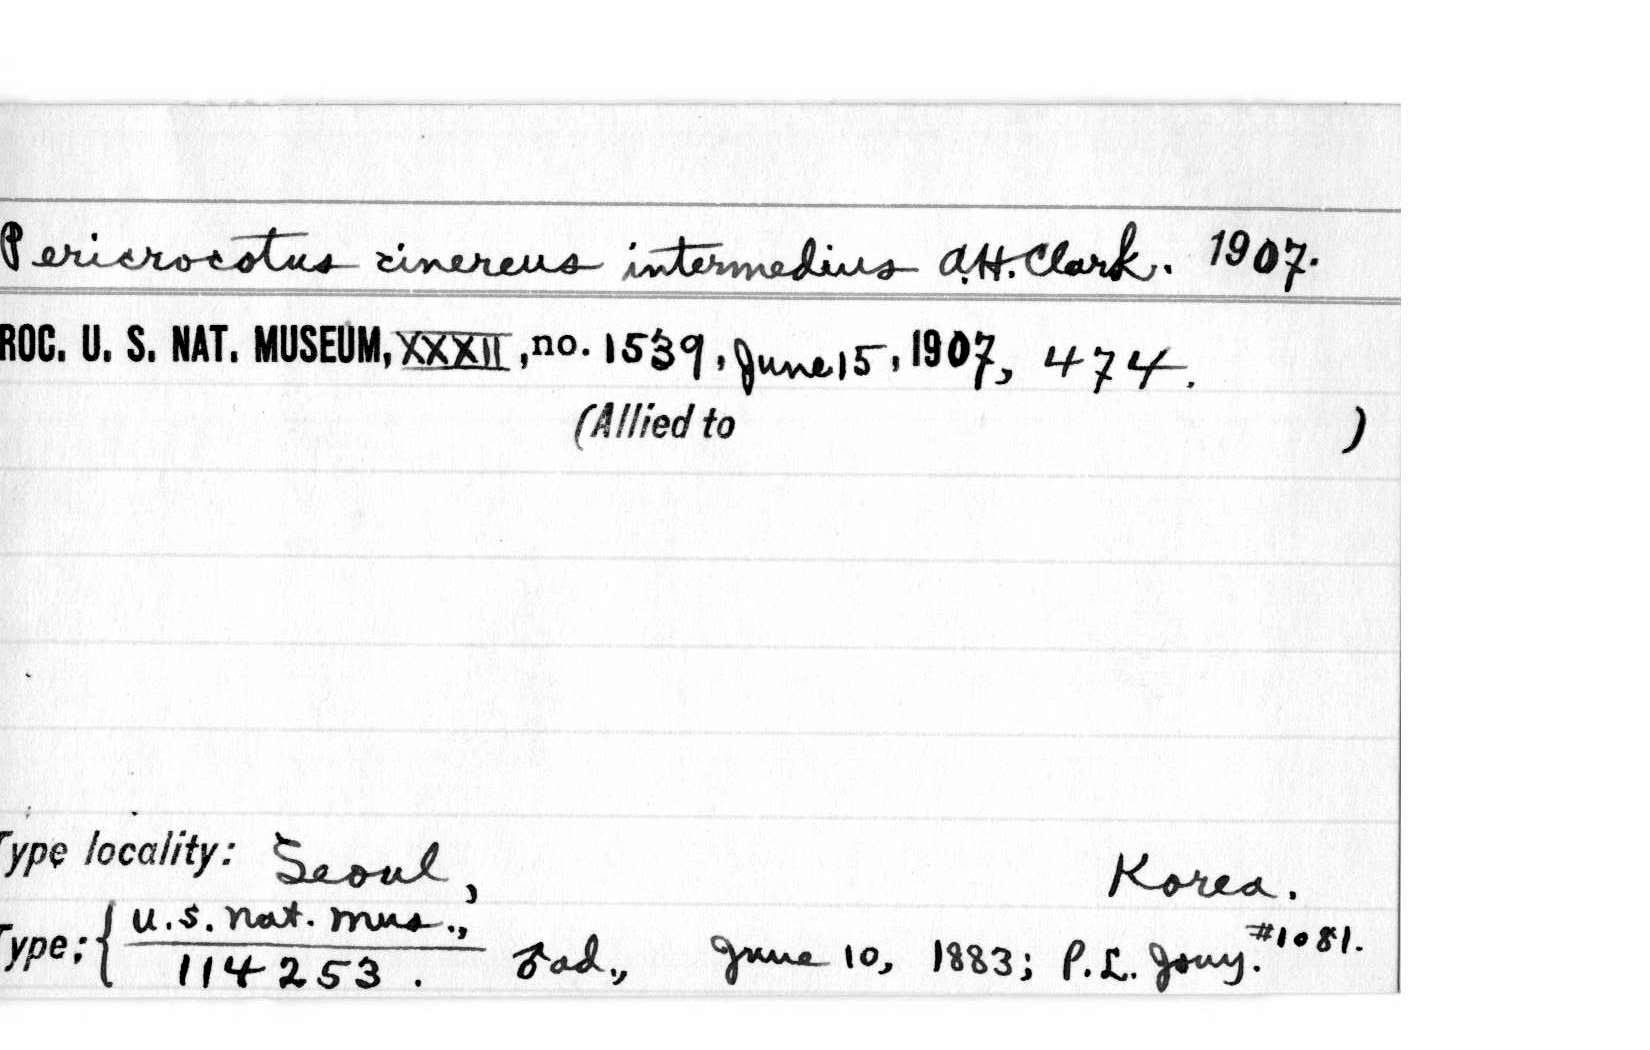 Pericrocotus cinereus intermedius A.H. Clark. 1907.
ROC. U. S. NAT. MUSEUM, XXXII, no. 1539, June 15, 1907, 474.
(Allied to )
Type locality: Seoul, Korea.
Type: { U.S. Nat. Mus.,
114253. ♂ ad., June 10, 1883; P. L. Jouy. #1081.